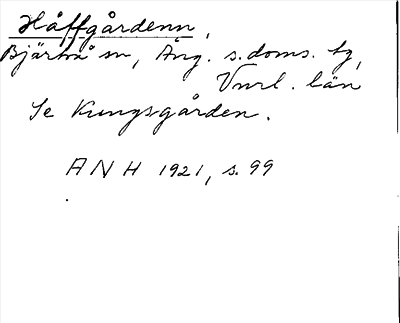 Håffgårdenn,
Bjärtrå sn, Ång. s. doms. tg,
Vnrl. län
Se Kungsgården.
ANH 1921, s. 99